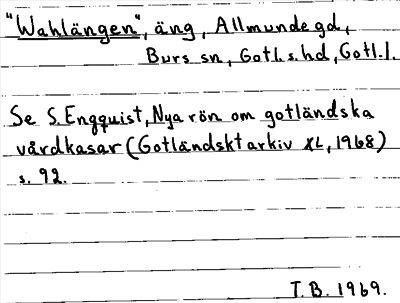 "Wahlängen", äng, Allmunde gd,
Burs sn, Gotl.s.hd, Gotl.l.
Se S. Engquist, Nya rön om gotländska
vårdkasar (Gotländskt arkiv XL, 1968)
s. 92.
T.B. 1969.